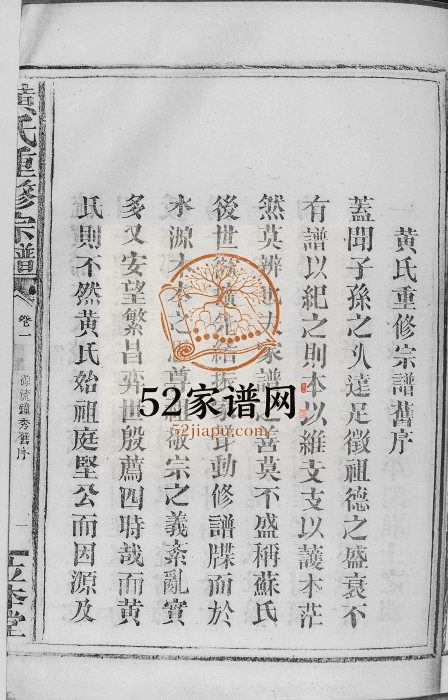 黄氏重修宗譜舊序
蓋聞子孫之乆遠足徵祖德之盛衰不
有譜以紀之則本以維支支以護本茫
然莫辨也大家譜之善莫不盛稱蘇氏
後世 聲動修譜牒而於
水源木本之 尊祖敬宗之義紊亂實
多又安望繁昌奕世殷薦四時哉而黄
氏則不然黄氏始祖庭堅公而因源及
黄氏重修宗譜
卷一
源流鐘秀舊序
一
立本堂
52家谱网
52jiapu.com